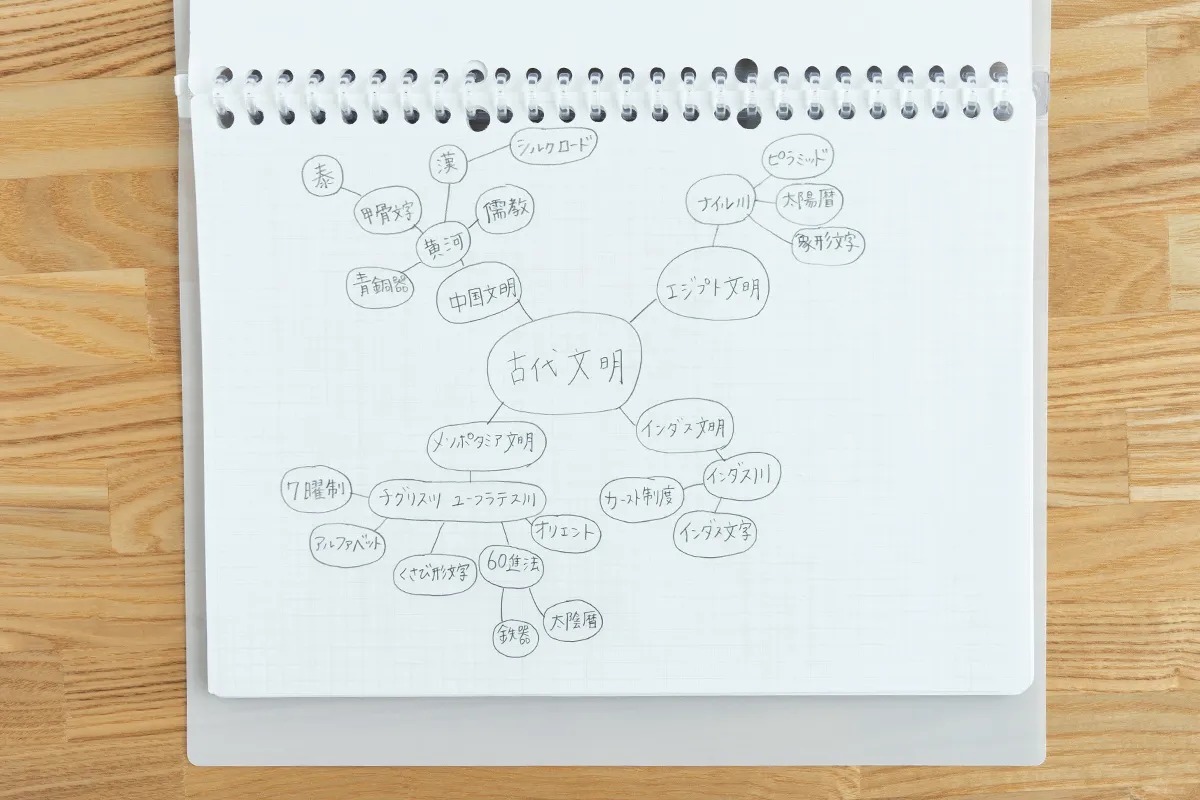 古代文明
中国文明
黄河
青銅器
甲骨文字
泰
漢
シルクロード
儒教
エジプト文明
ナイル川
ピラミッド
太陽暦
象形文字
インダス文明
インダス川
カースト制度
インダス文字
メソポタミア文明
チグリス川 ユーフラテス川
7曜制
アルファベット
くさび形文字
60進法
鉄器
太陰暦
オリエント